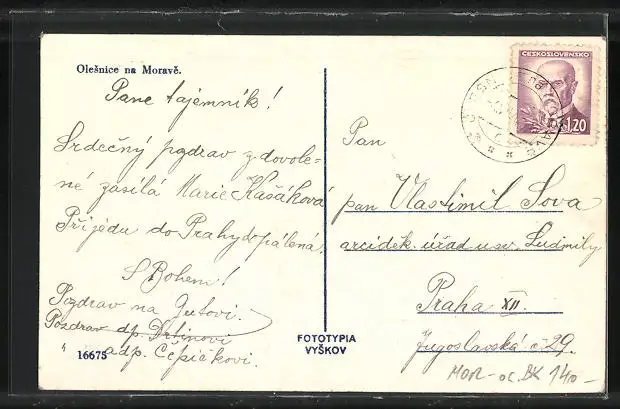 Olešnice na Moravě.
Pane tajemník!
Srdečný pozdrav z dovole-
né zasílá Marie Kašáková
Přijedu do Prahy opálená.
S Bohem!
Pozdrav na Jutovi.
Pozdrav dp. Drtinovi
adp. Čepičkovi.
16675
FOTOTYPIA
VYŠKOV
ČESKOSLOVENSKO
1,20
Pan
pan Vlastimil Sova
arciděk. úřad u sv. Ludmily
Praha XII.
Jugoslavská č 29.
MOR- oc. BK 140-